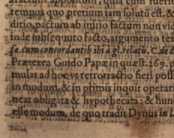 tempus quo pretium iam solutũ est. &
ditio, pactum ab initio factum non vi
in de subsequuto facto, argumento
sa cum concordantiis ibi à gl. relatis. C. de
Præterea Guido Papæ in quæst. 169.
mulas ad hoc vt retrotractio fieri poss
in modum, & in primis inquit operat
neat obligata & hypothecata: & hunc
esse modum, de quo tradit Dynus in l.